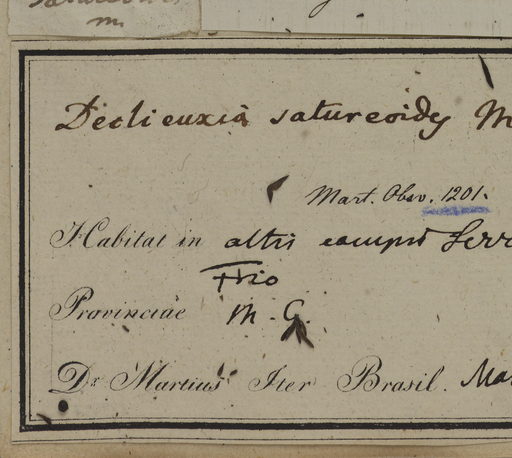 m.
Declieuxia satureoides M
Mart. Obsv. 1201.
Habitat in altis campis Serr
Frio
Provinciae M. G.
Dr. Martius Iter Brasil. Mar